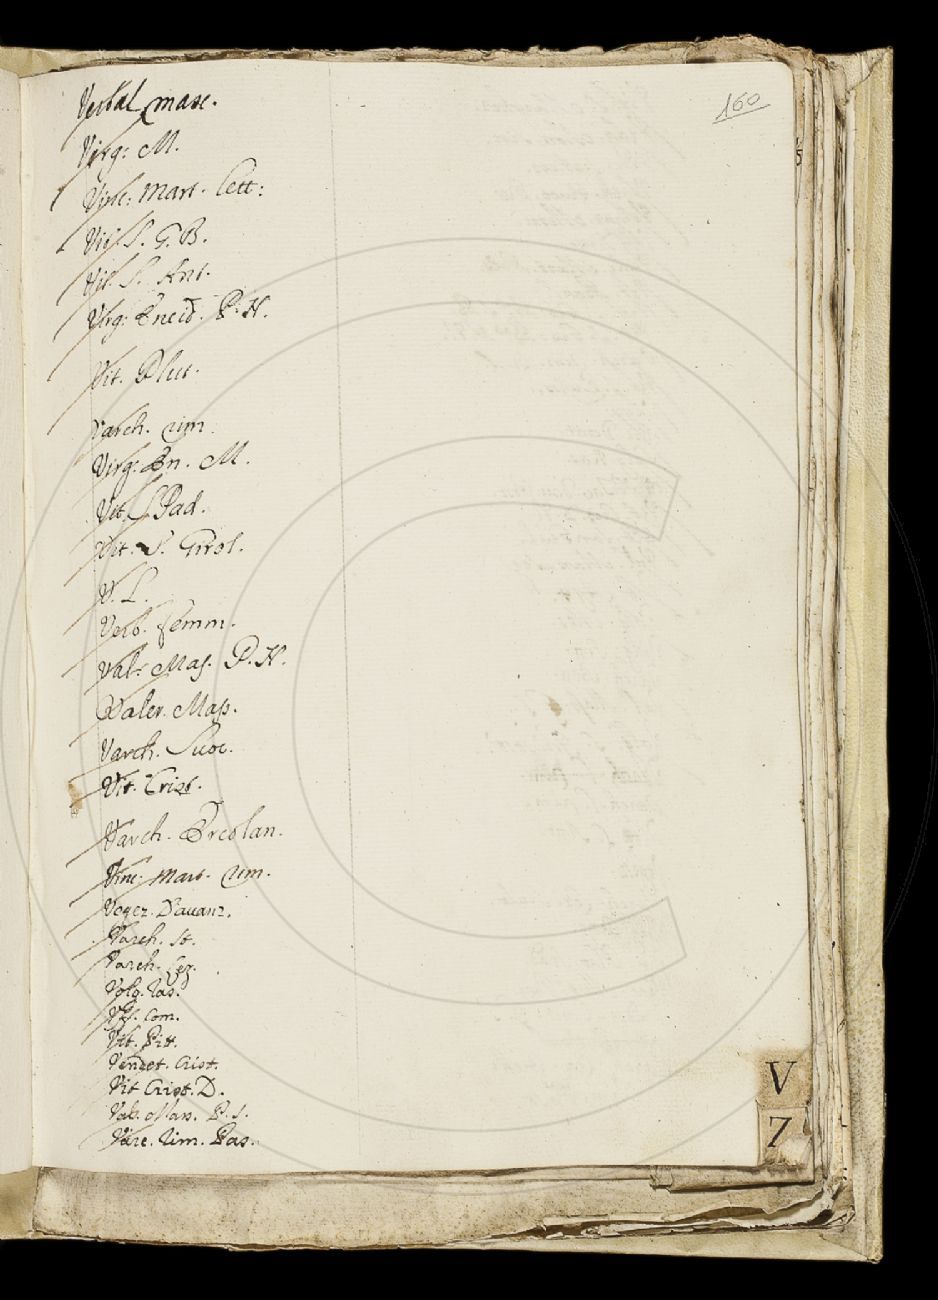 160
Verbal masc.
Virg: M.
Vinc: Mart. Lett:
Vit. S. G. B.
Vit. S. Ant.
Virg: Eneid. P. N.
Vit. Plut.
Varch. rim.
Virg: En. M.
Vit. S Pad.
Vit. S. Girol.
V. L.
Verb. femm.
Val: Mas. P. N.
Valer. Mass.
Varch. Suoc.
Vit. Crist.
Varch. Ercolan.
Vinc: Mart. rim.
Vegez.
Varch. st.
Varch. Lez.
Volg. ras.
com.
Vit. Pitt.
Vendet. Crist.
Vit Crist. D.
Val. Mass. P. S.
Varc. rim. Pas.
V
Z